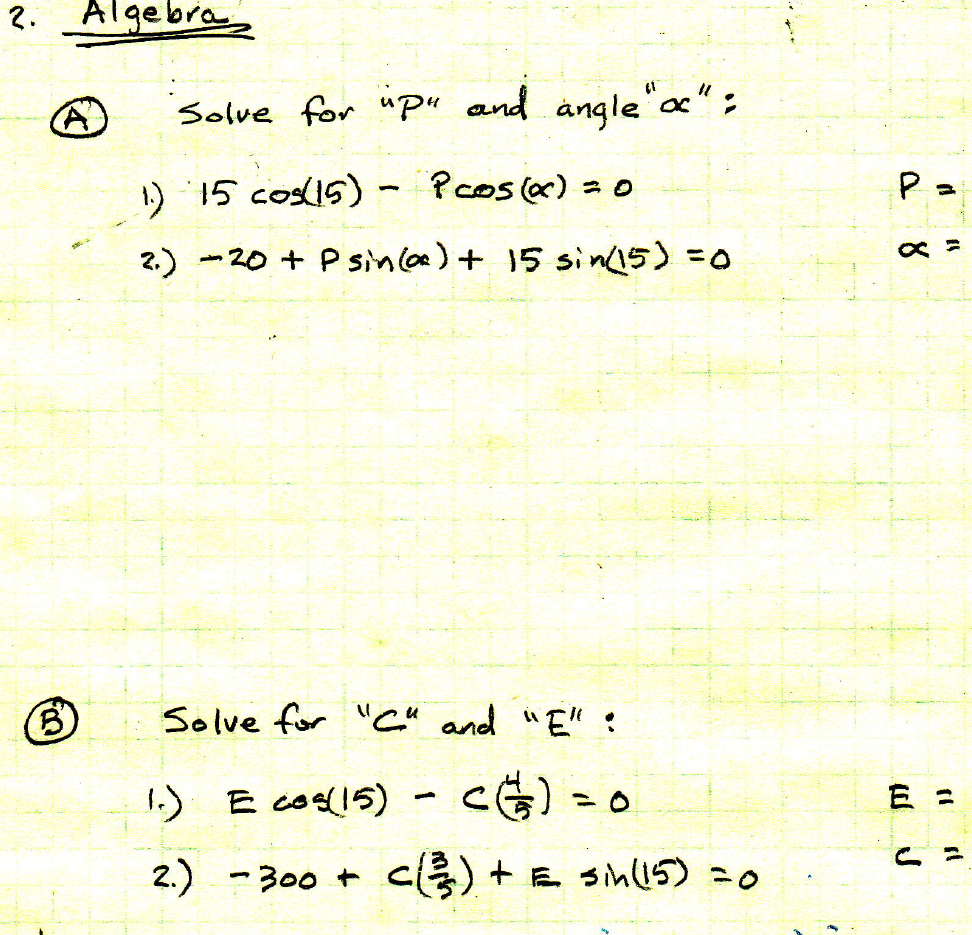 2. Algebra
(A) Solve for "P" and angle "α":
1.) 15 cos(15) - P cos(α) = 0 P =
2.) -20 + P sin(α) + 15 sin(15) = 0 α =
(B) Solve for "C" and "E":
1.) E cos(15) - C(4/5) = 0 E =
2.) -300 + C(3/5) + E sin(15) = 0 C =